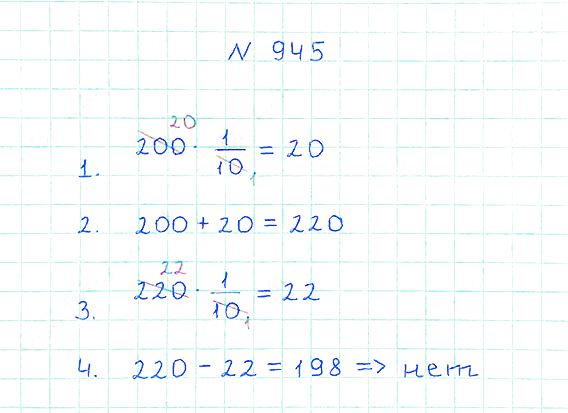 N 945
1. 200 20 · 1/10 1 = 20
2. 200 + 20 = 220
3. 220 22 · 1/10 1 = 22
4. 220 - 22 = 198 => нет